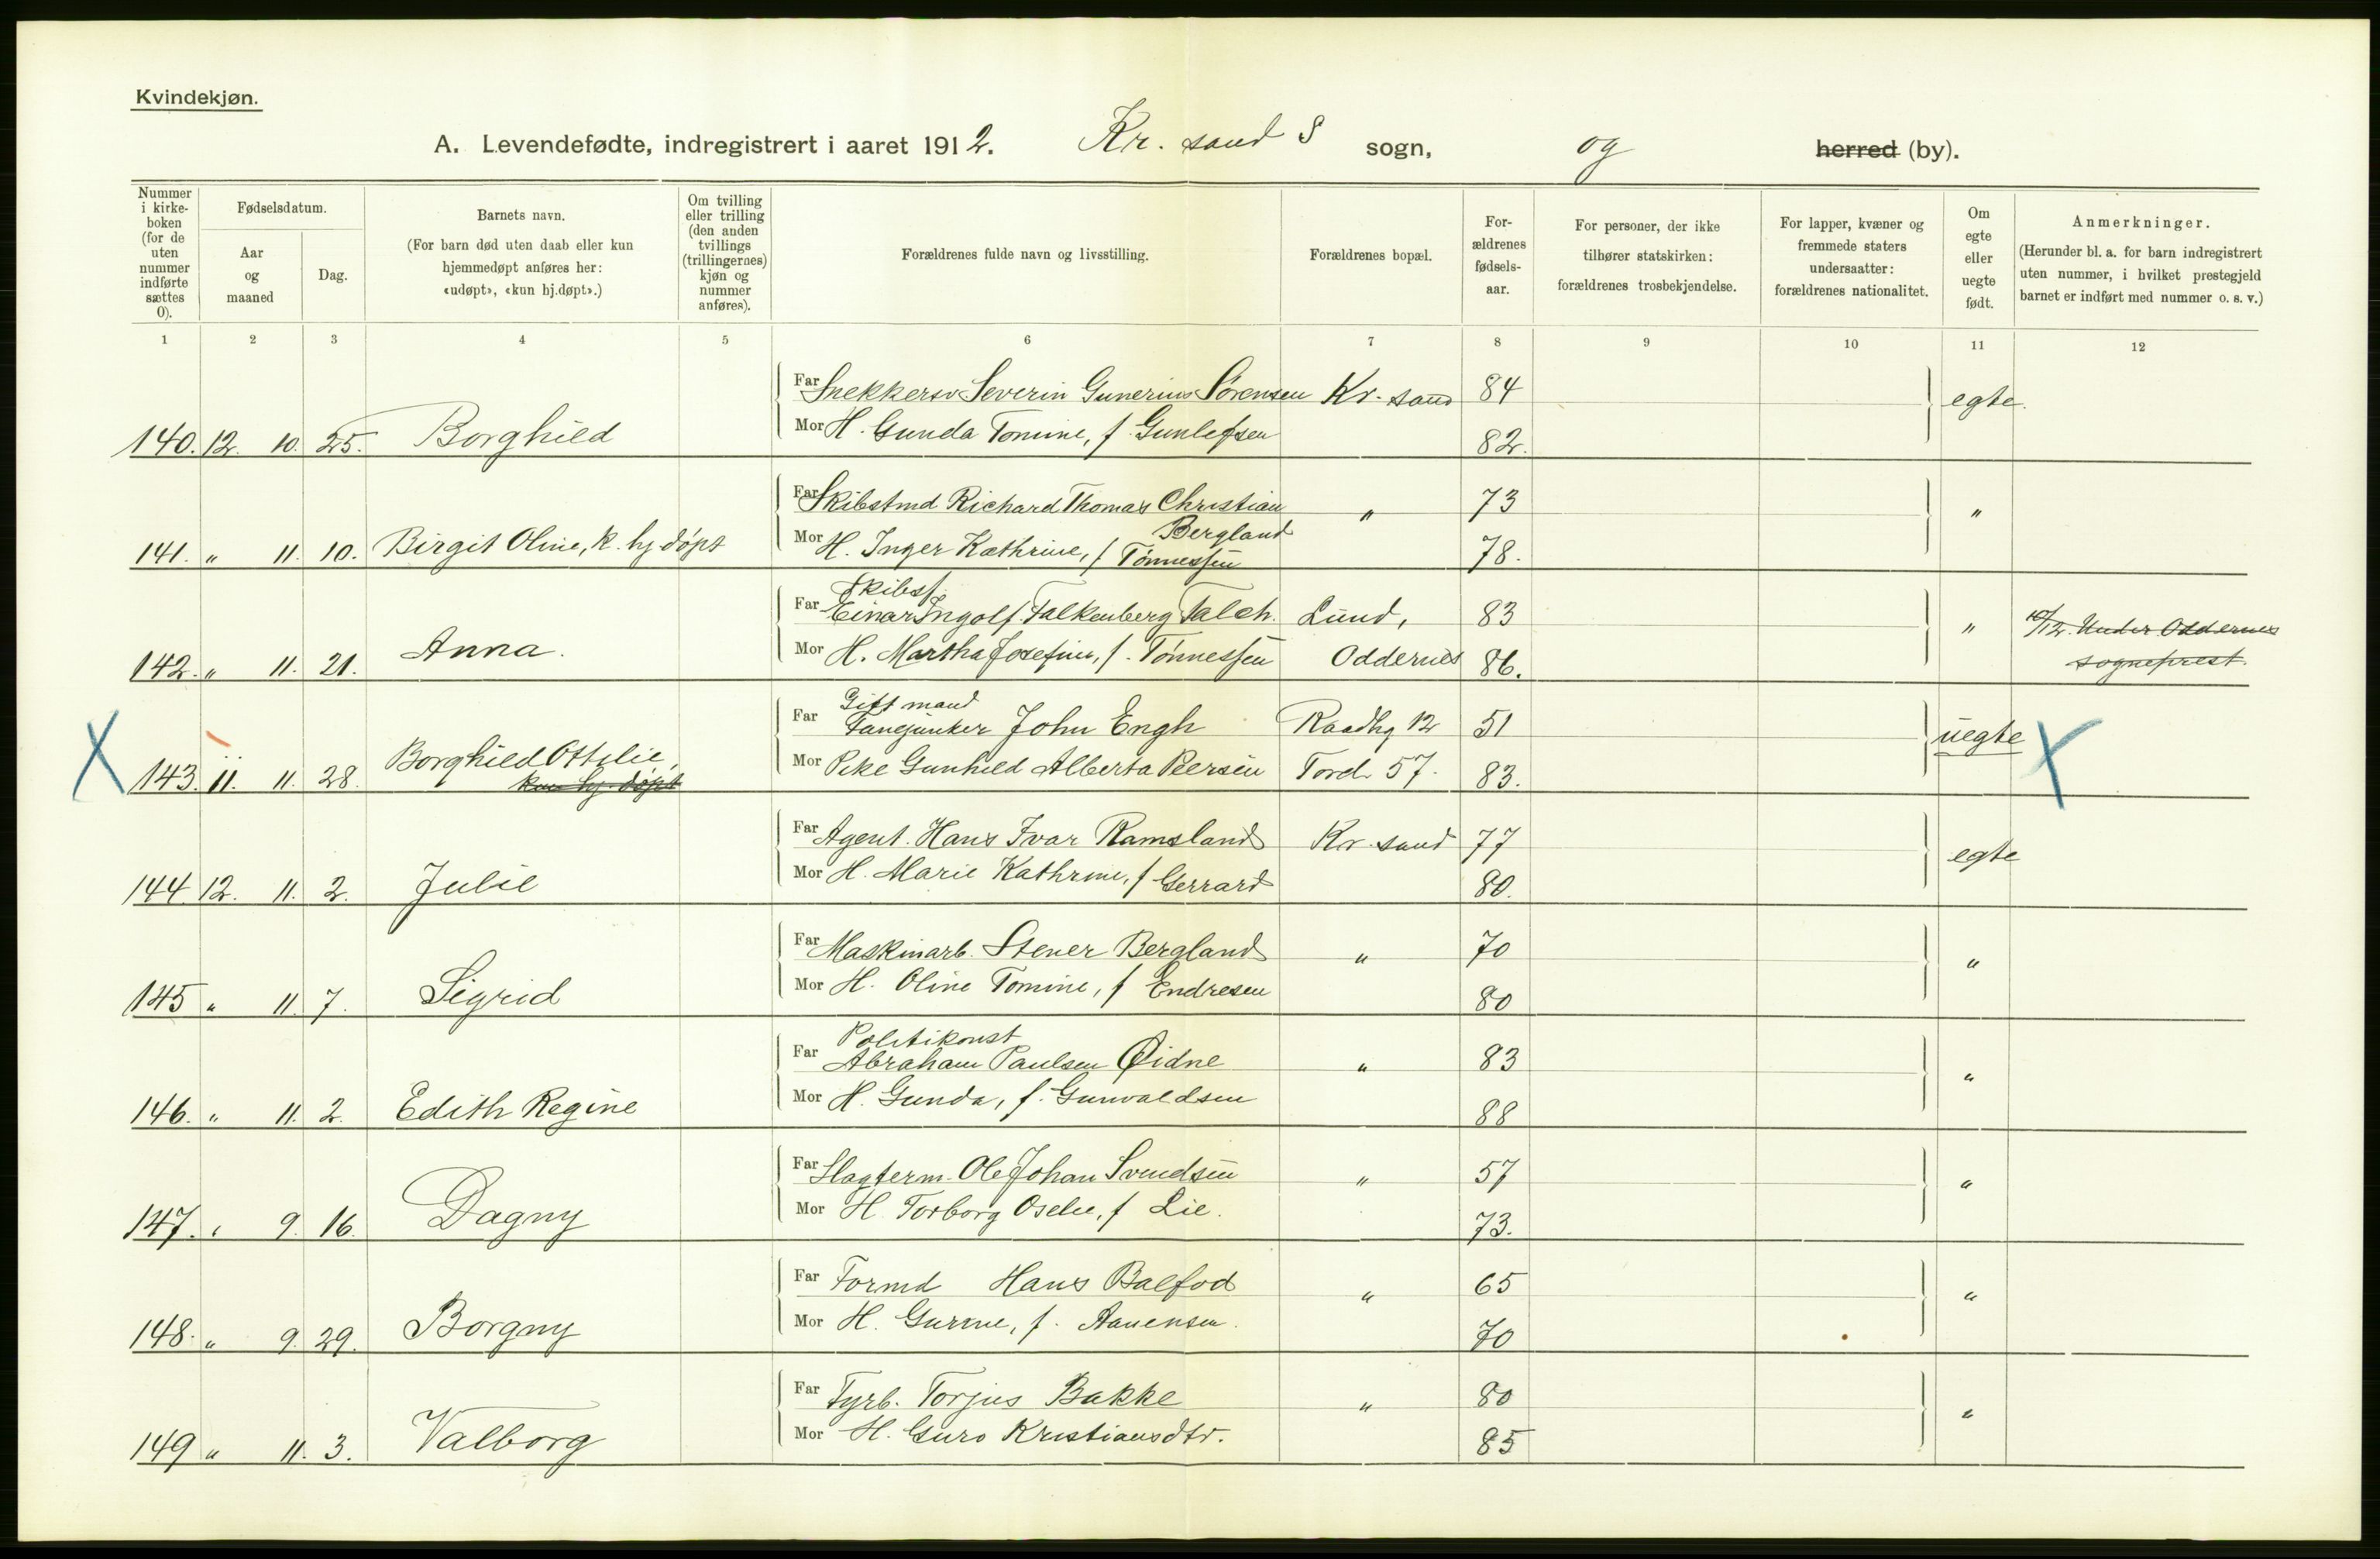 Kvindekjøn.
A. Levendefødte, indregistrert i aaret 1912. Kr. sand S sogn, og herred (by).
Nummer i kirke-boken (for de uten nummer indførte sættes 0).
Fødselsdatum.
Aar og maaned
Dag.
Barnets navn.
(For barn død uten daab eller kun hjemmedøpt anføres her: «udøpt», «kun hj.døpt».)
Om tvilling eller trilling (den anden tvillings (trillingernes) kjøn og nummer anføres).
Forældrenes fulde navn og livsstilling.
Forældrenes bopæl.
For-ældrenes fødsels-aar.
For personer, der ikke tilhører statskirken: forældrenes trosbekjendelse.
For lapper, kvæner og fremmede staters undersaatter: forældrenes nationalitet.
Om egte eller uegte født.
Anmerkninger.
(Herunder bl. a. for barn indregistrert uten nummer, i hvilket prestegjeld barnet er indført med nummer o. s. v.)
1 2 3 4 5 6 7 8 9 10 11 12
Far Snekkersv Severin Gunerius Sørensen Kr. sand 84 egte.
140. 12. 10. 25. Borghild Mor H. Gunda Tomine, f. Gunlefsen 82.
Far Skibstmd Richard Thomas Christian Bergland " 73 "
141. " 11. 10. Birgit Oline, k. hj døpt Mor H. Inger Kathrine, f Tønnessen 78.
Far Skibsf. Einar Ingolf Falkenberg Falch. Lund, 83 " 10/12. Under Oddernes
142. " 11. 21. Anna. Mor H. Martha Josefine, f. Tønnessen Oddernes 86. sogneprest.
Far Gift mand Fanejunker John Engh Raadhg 12 51 uegte
X 143. 11. 11. 28. Borghild Ottilie, kun hj. døpt Mor Pike Gunhild Alberta Peersen Tord. 57. 83. X
Far Agent. Hans Ivar Ramsland Kr. sand 77 egte
144 12. 11. 2. Julie Mor H. Marie Kathrine, f Gerrard 80.
Far Maskinarb. Stener Bergland " 70 "
145 " 11. 7. Sigrid Mor H. Oline Tomine, f Endresen 80
Far Politikonst Abraham Paulsen Øidne " 83 "
146. " 11. 2. Edith Regine Mor H. Gunda, f. Gunvaldsen 88
Far Slagterm. Ole Johan Svendsen " 57 "
147. " 9. 16. Dagny Mor H. Torborg Oselie, f Lie. 73.
Far Formd Hans Balfod " 65 "
148. " 9. 29. Borgny Mor H. Gurine, f. Aanensen. 70
Far Fyrb. Torjus Bakke " 80 "
149 " 11. 3. Valborg Mor H. Guro Kristiansdtr. 85